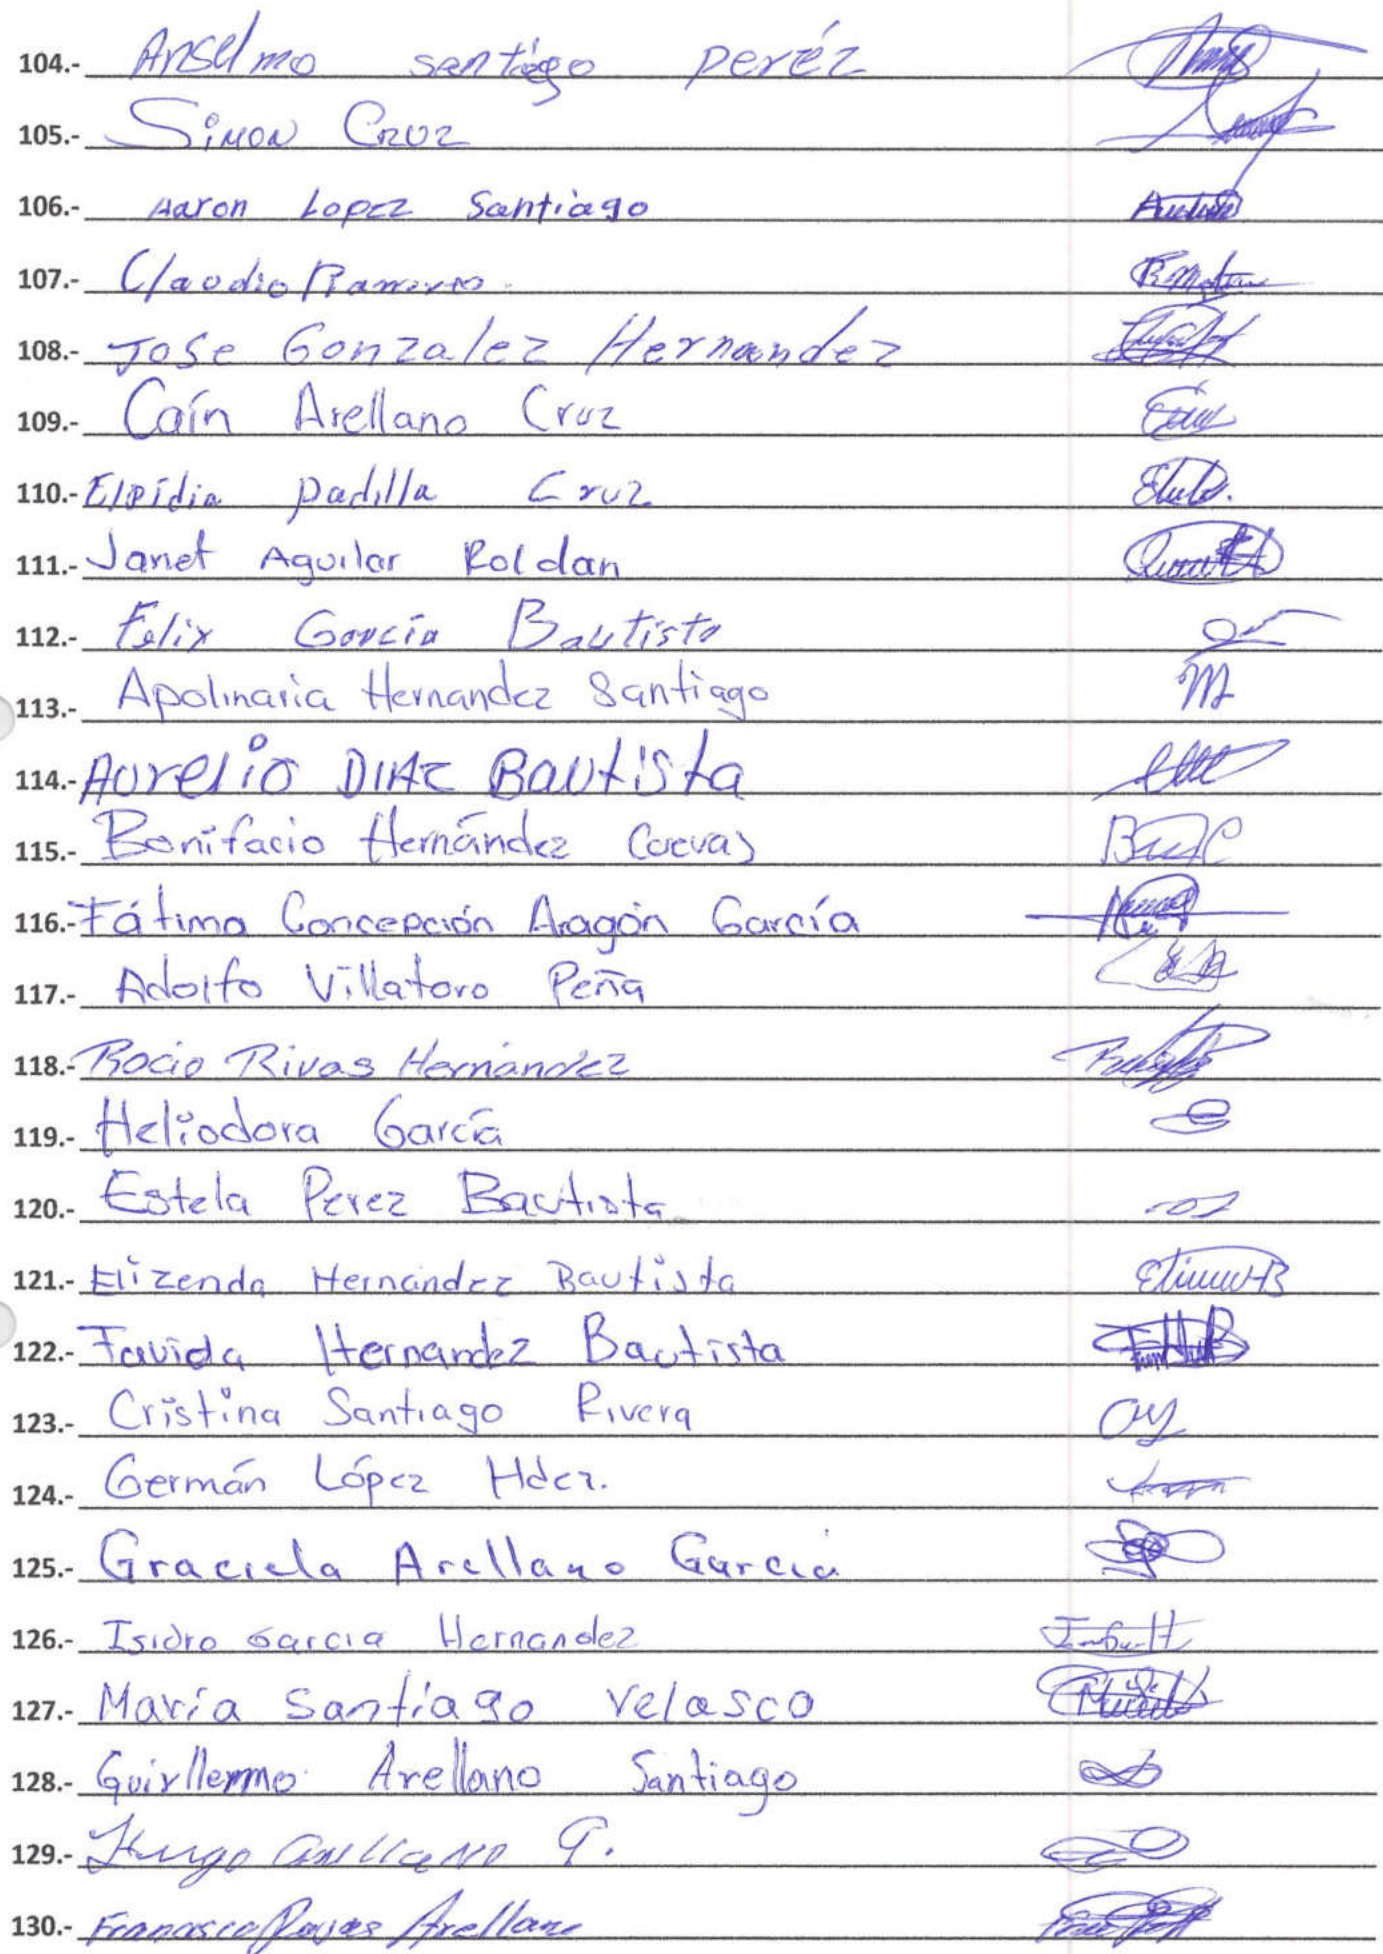 104.- Anselmo santiágo peréz
105.- Simon Cruz
106.- Aaron Lopez Santiago
107.- Claudio
108.- Jose Gonzalez Hernandez
109.- Caín Arellano Cruz
110.- Elpídia padilla Cruz
111.- Janet Aguilar Roldan
112.- Felix García Bautista
113.- Apolinaria Hernandez Santiago
114.- Aurelio DIAZ Bautista
115.- Bonifacio Hernández Cuevas
116.- Fátima Concepción Aragón García
117.- Adolfo Villatoro Peña
118.- Rocio Rivas Hernández
119.- Heliodora García
120.- Estela Perez Bautista
121.- Elizenda Hernández Bautista
122.- Favida Hernandez Bautista
123.- Cristina Santiago Rivera
124.- Germán López Hdez.
125.- Graciela Arellano Garcia
126.- Isidro Garcia Hernandez
127.- María Santiago Velasco
128.- Guirllermo Arellano Santiago
129.- Hugo Arellano G.
130.- Francisca Rojas Arellano